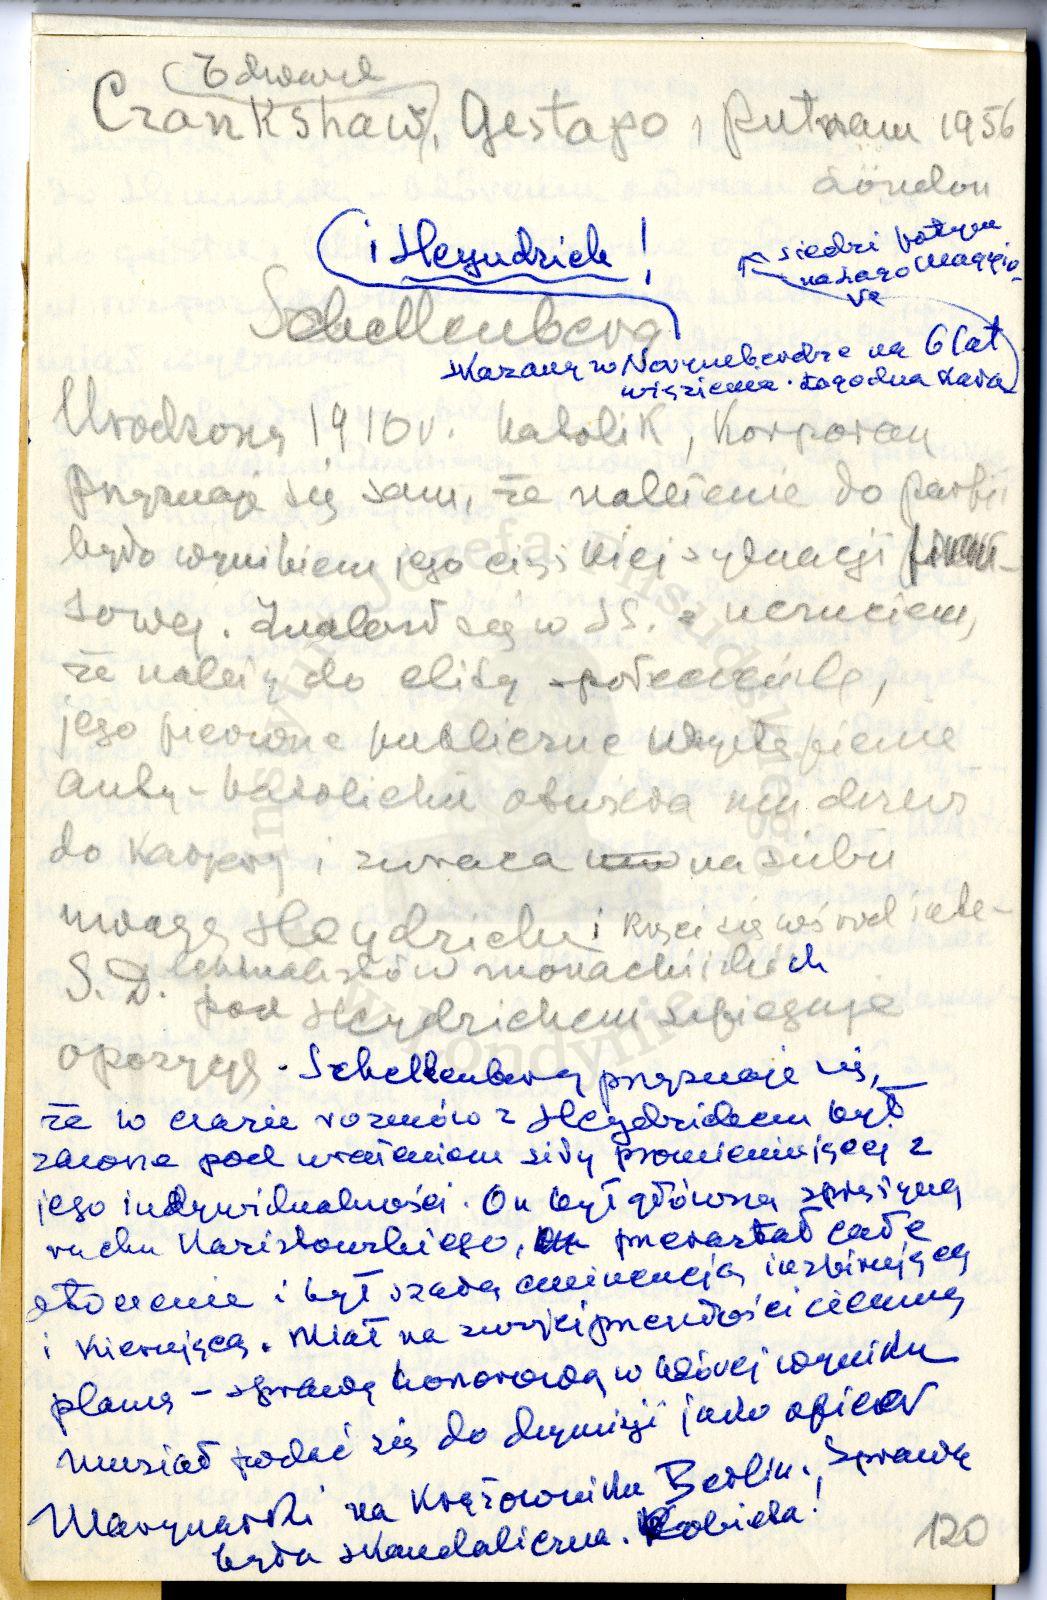 Edward
Crankshaw, Gestapo, Putnam 1956
London
(i Heydrich!
siedzi potym
na Lago Maggio-
re
Schellenberg
skazany w Norymberdze na 6 lat
więzienia. łagodna kara
Urodzony 1910 r. katolik, Korporan
Przyznaje się sam, że należenie do partji
było wynikiem jego ciężkiej sytuacji finan-
sowej. Znalazł się w SS. z uczuciem,
że należy do elity społecznej,
jego pierwsze publiczne wystąpienie
anty-katolickie otwiera mu drzwi
do karjery i zwraca na siebie
uwagę Heydricha i kręci się wśród inte-
lektualistów monachijskich
S.D. pod Heydrichem szpieguje
opozycję. Schellenberg przyznaje się,
że w czasie rozmów z Heydrichem był
zawsze pod wrażeniem siły promieniującej z
jego indywidualności. On był główną sprężyną
ruchu Narisłowskiego, przerastał całe
otoczenie i był szarą eminencją inspirującą
i kierującą. Miał na swojej przeszłości ciemną
plamę - sprawę honorową w której wyniku
musiał podać się do dymisji jako oficer
Marynarki na Krążowniku Berlin. Sprawa
była skandaliczna. Kobieta!
120
Instytut Józefa Piłsudskiego
w Londynie